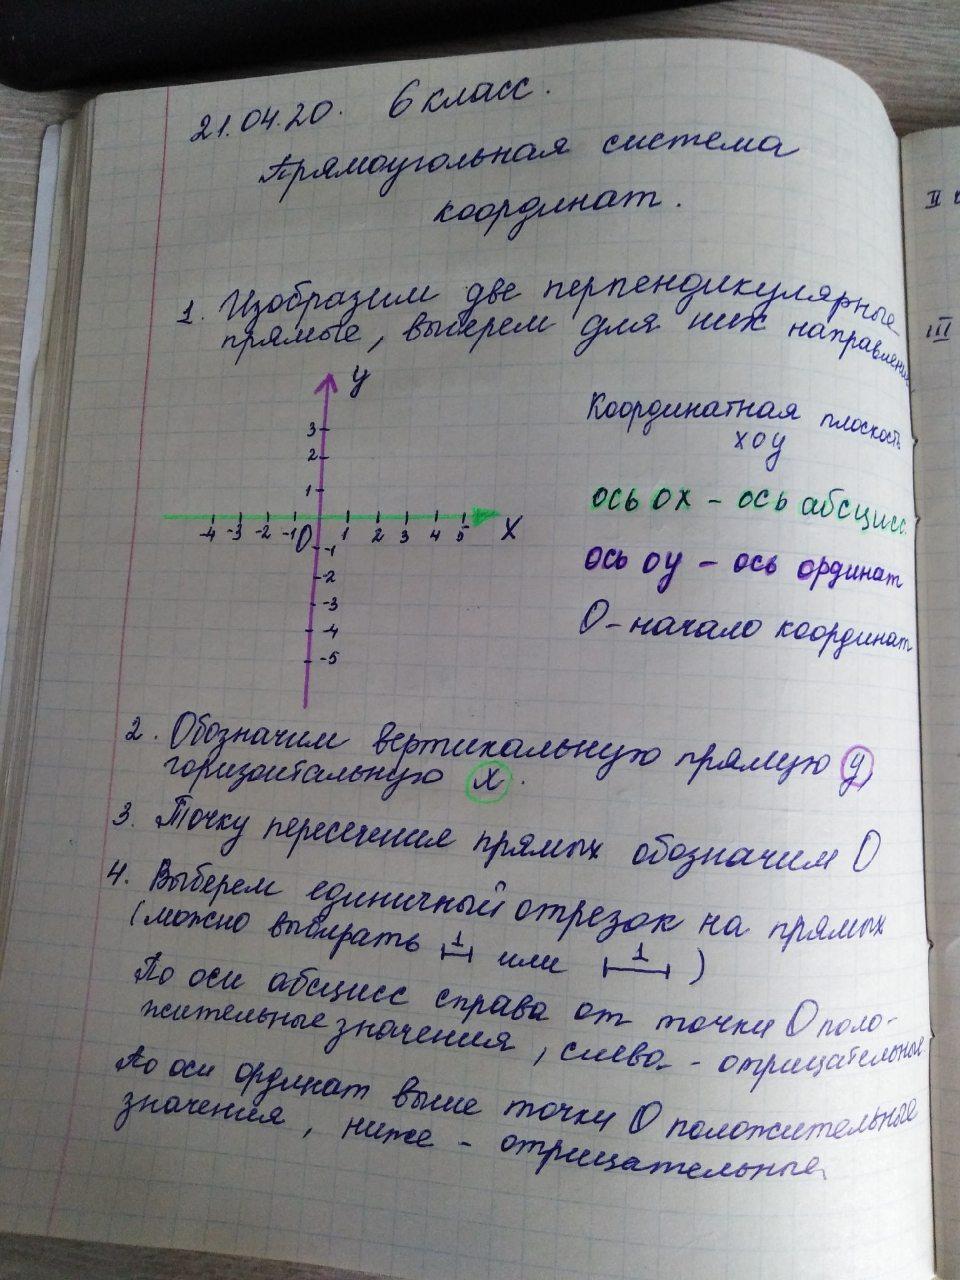 21.04.20. 6 класс.
Прямоугольная система
координат.
1. Изобразим две перпендикулярные
прямые, выберем для них направления
y
3
2
1
-4 -3 -2 -1 0 1 2 3 4 5 x
-1
-2
-3
-4
-5
Координатная плоскость
xoy
ось ox - ось абсцисс.
ось oy - ось ординат
O - начало координат
2. Обозначим вертикальную прямую y
горизонтальную x.
3. Точку пересечения прямых обозначим O
4. Выберем единичный отрезок на прямых
(можно выбирать 1 или 1)
По оси абсцисс справа от точки O поло-
жительные значения, слева - отрицательные.
По оси ординат выше точки O положительные
значения, ниже - отрицательные.
II
III